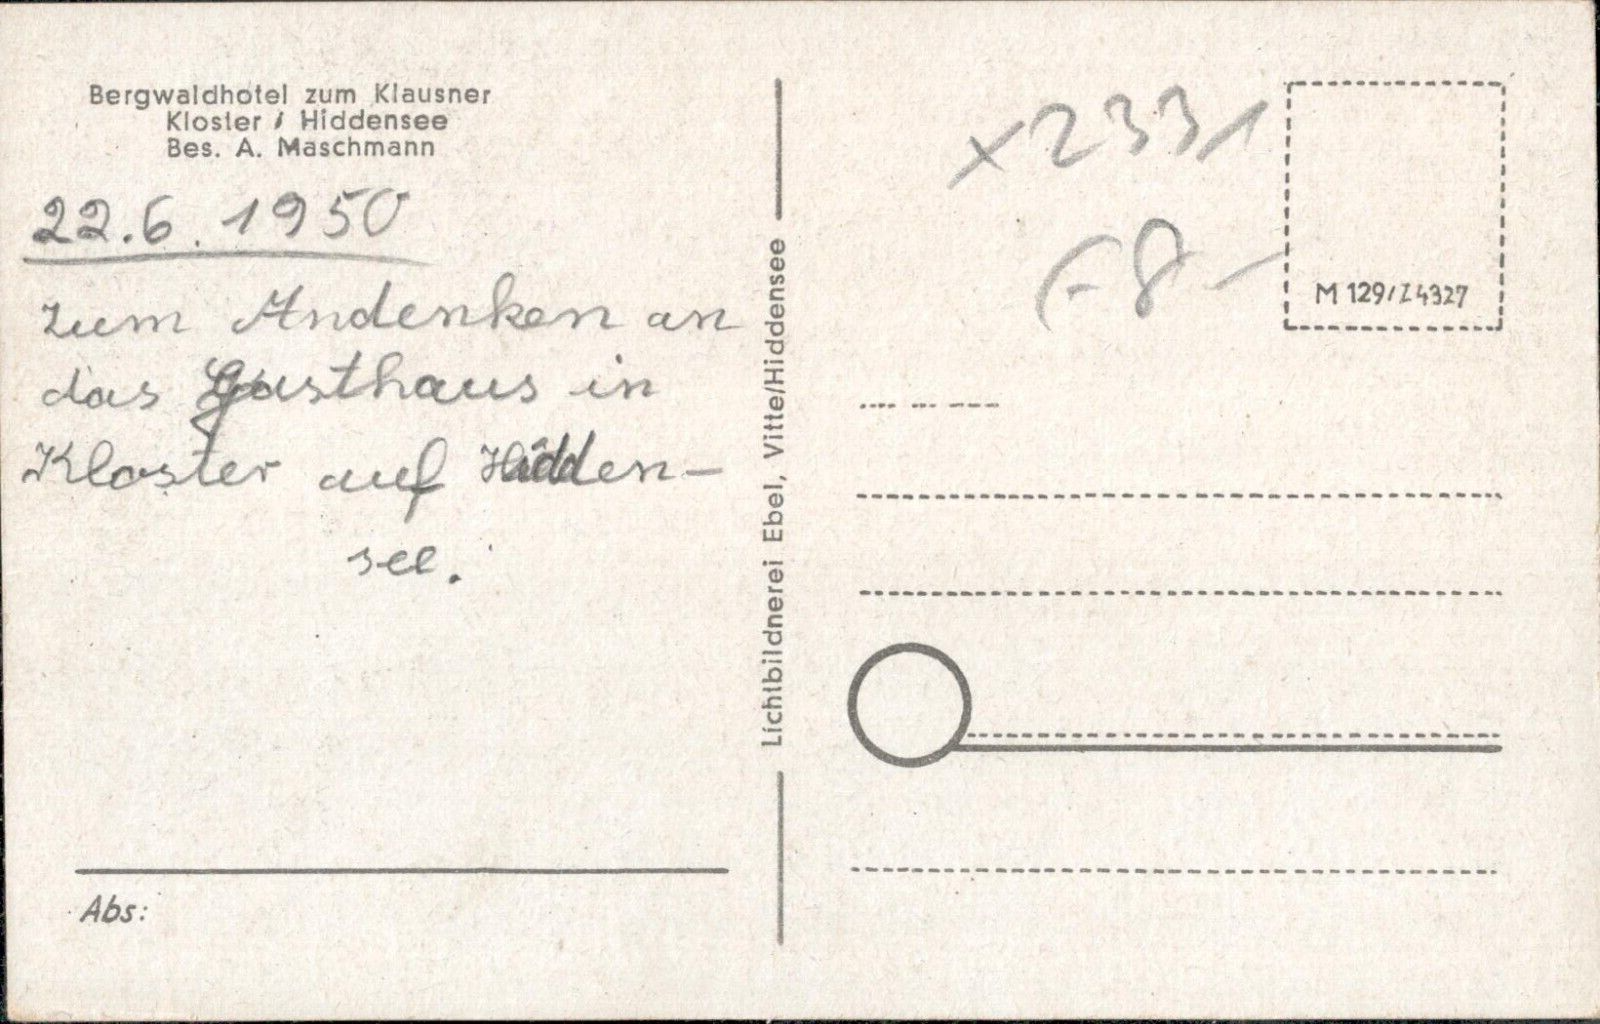 Bergwaldhotel zum Klausner
Kloster / Hiddensee
Bes. A. Maschmann
22.6.1950
zum Andenken an
das Gasthaus in
Kloster auf Hidden-
see.
Abs:
Lichtbildnerei Ebel, Vitte/Hiddensee
x2331
8-
M 129/Z4327